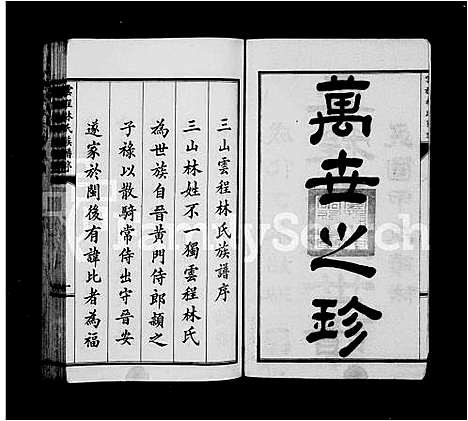 萬世之珍
三山雲程林氏族譜序
三山林姓不一獨雲程林氏
為世族自晉黃門侍郎穎之
子祿以散騎常侍出守晉安
遂家於閩後有諱比者為福
FamilySearch